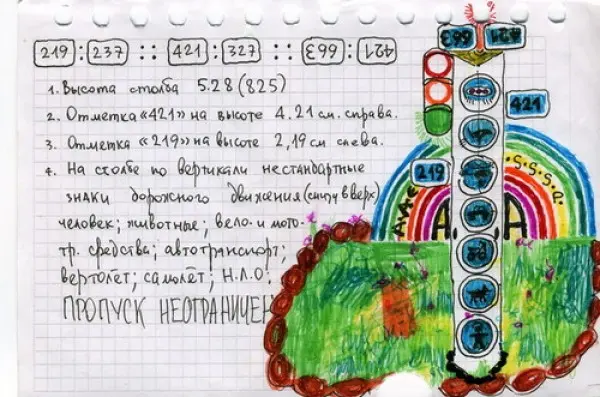 219 : 237 :: 421 : 327 :: 663 : 421
1. Высота столба 5.28 (825)
2. Отметка «421» на высоте 4.21 см. справа.
3. Отметка «219» на высоте 2,19 см слева.
4. На столбе по вертикали нестандартные
знаки дорожного движения (снизу вверх)
человек; животные; вело. и мото
тр. средства; автотранспорт;
вертолёт; самолёт; Н.Л.О.
ПРОПУСК НЕОГРАНИЧЕН
663 421
421
219
A A